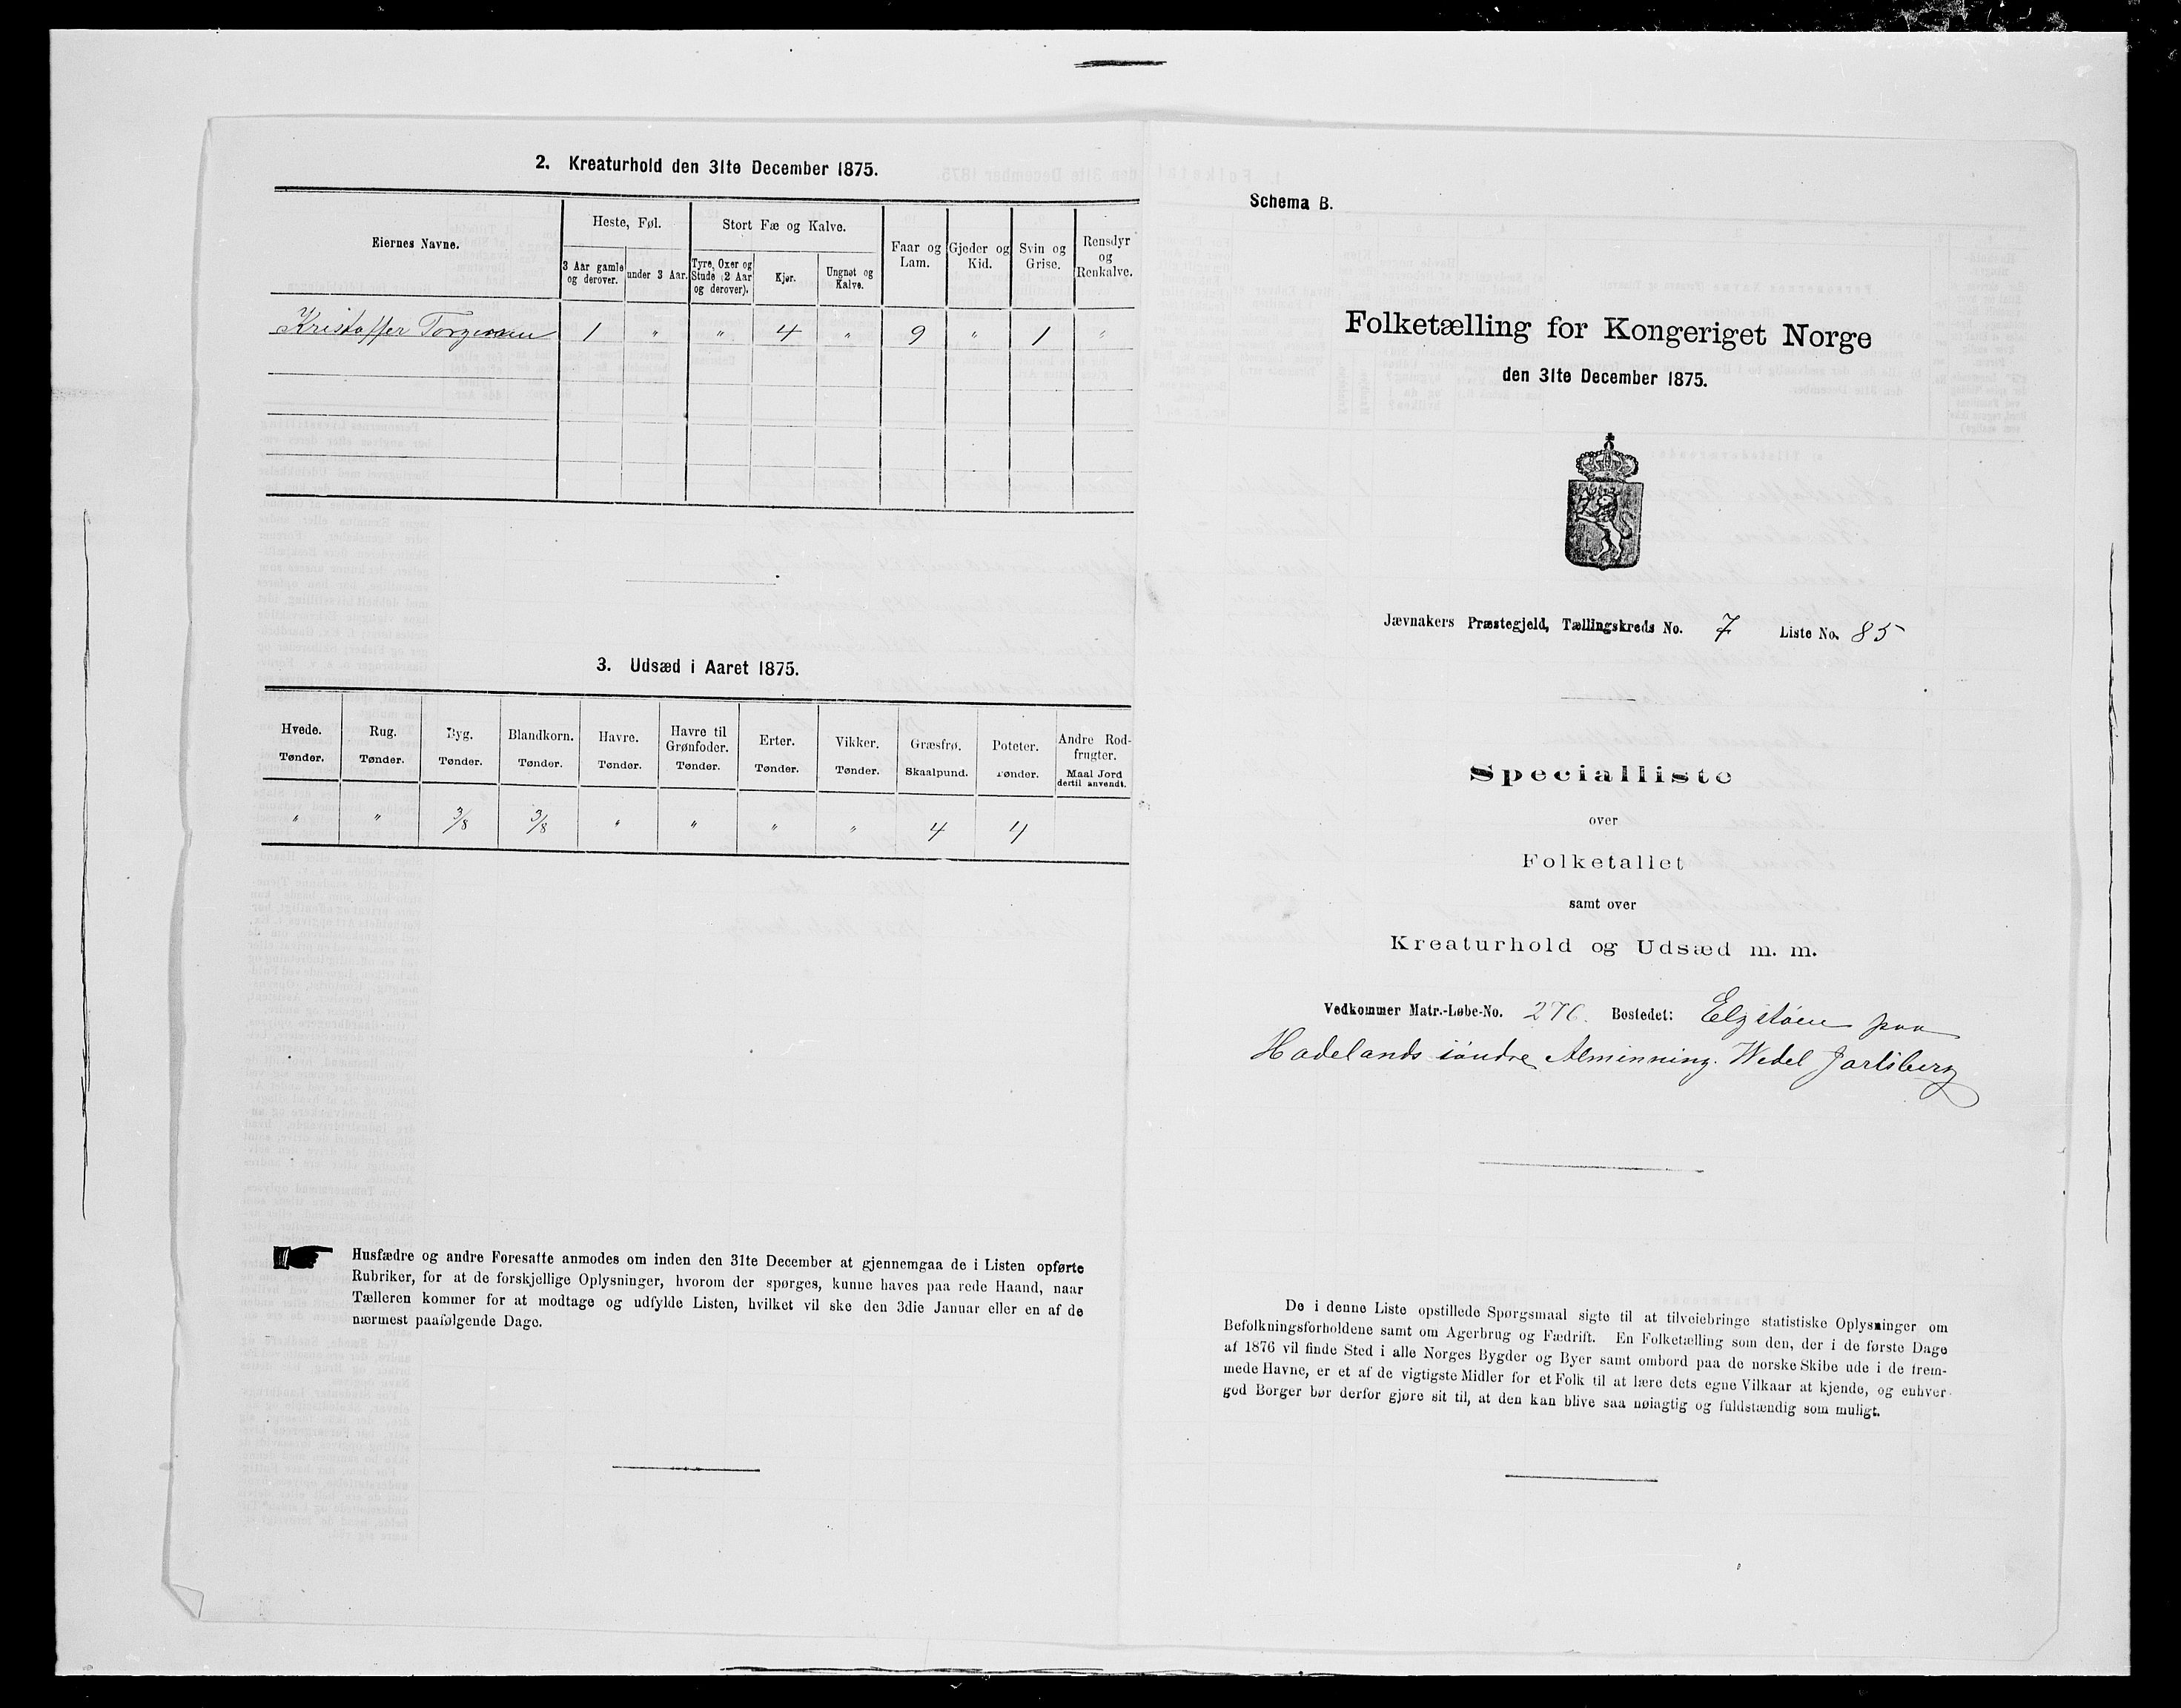 2. Kreaturhold den 31te December 1875.
Eiernes Navne.
Heste, Føl.
3 Aar gamle og derover.
under 3 Aar.
Stort Fæ og Kalve.
Tyre, Oxer og Stude (2 Aar og derover).
Kjør.
Ungnøt og Kalve.
Faar og Lam.
Gjeder og Kid.
Svin og Grise.
Rensdyr og Renkalve.
Kristoffer Torgersen 1 " " 4 " 9 " 1 "
3. Udsæd i Aaret 1875.
Hvede. Rug. Byg. Blandkorn. Havre. Havre til Grønfoder. Erter. Vikker. Græsfrø. Poteter. Andre Rodfrugter.
Tønder. Tønder. Tønder. Tønder. Tønder. Tønder. Tønder. Tønder. Skaalpund. Tønder. Maal Jord dertil anvendt.
" " 3/8 3/8 " " " " 4 4
Husfædre og andre Foresatte anmodes om inden den 31te December at gjennemgaa de i Listen opførte
Rubriker, for at de forskjellige Oplysninger, hvorom der spørges, kunne haves paa rede Haand, naar
Tælleren kommer for at modtage og udfylde Listen, hvilket vil ske den 3die Januar eller en af de
nærmest paafølgende Dage.
Schema B.
Folketælling for Kongeriget Norge
den 31te December 1875.
Jævnakers Præstegjeld, Tællingskreds No. 7 Liste No. 85
Specialliste
over
Folketallet
samt over
Kreaturhold og Udsæd m. m.
Vedkommer Matr.-Løbe-No. 276. Bostedet: Elgstøen paa
Hadelands søndre Alminning. Wedel Jarlsberg
De i denne Liste opstillede Spørgsmaal sigte til at tilveiebringe statistiske Oplysninger om
Befolkningsforholdene samt om Agerbrug og Fædrift. En Folketælling som den, der i de første Dage
af 1876 vil finde Sted i alle Norges Bygder og Byer samt ombord paa de norske Skibe ude i de frem-
mede Havne, er et af de vigtigste Midler for et Folk til at lære dets egne Vilkaar at kjende, og enhver
god Borger bør derfor gjøre sit til, at den kan blive saa nøiagtig og fuldstændig som muligt.